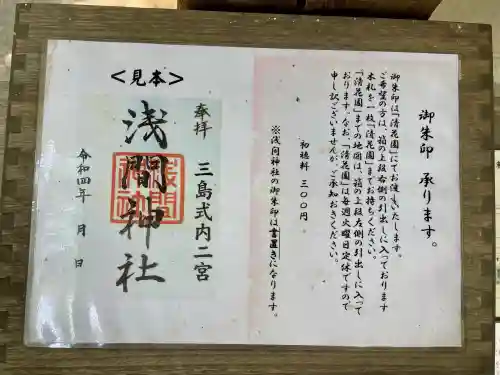 御朱印 承ります。
御朱印は「清花園」にてお渡しいたします。
ご希望の方は、箱の上段右側の引出しに入っております
木札を一枚「清花園」までお持ちください。
「清花園」までの地図は、箱の上段左側の引出しに入って
おります。なお、「清花園」は毎週火曜日定休ですので
申し訳ございませんが、ご承知おきください。
初穂料 三〇〇円。
※浅间神社の御朱印は書置きになります。
<見本>
奉拝
三島式内二宮
浅間神社
浅間神社
令和四年 月 日